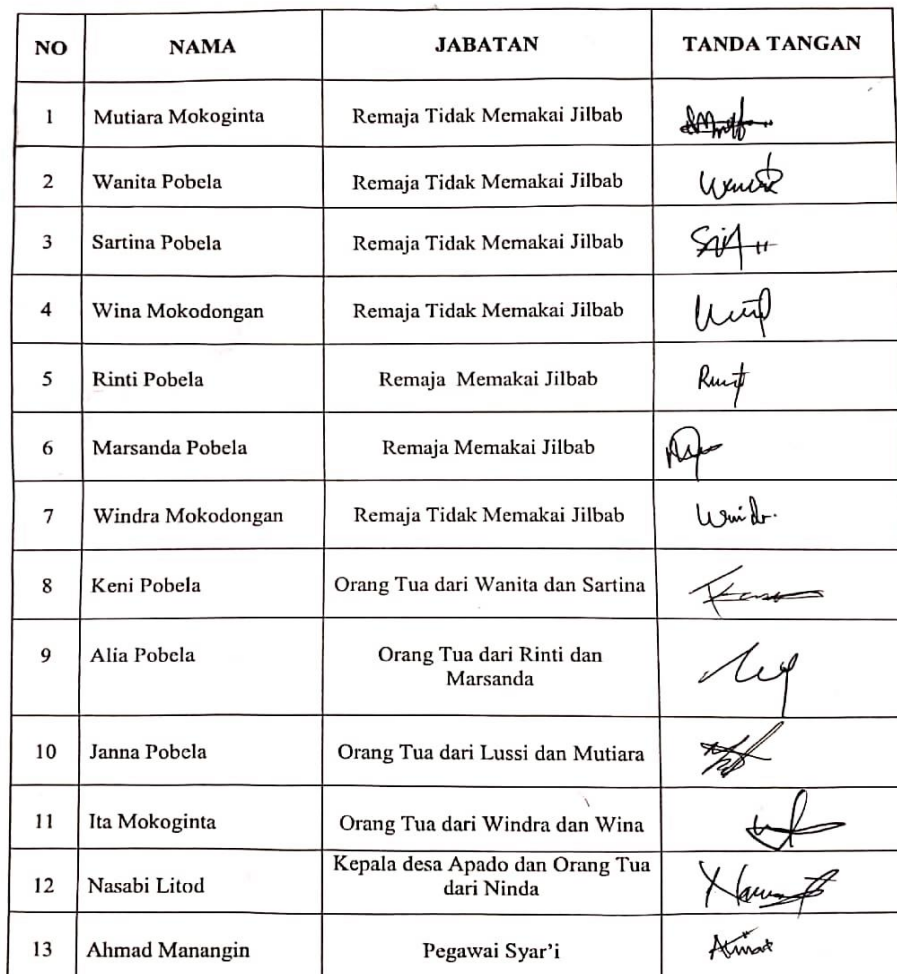 NO NAMA JABATAN TANDA TANGAN
1 Mutiara Mokoginta Remaja Tidak Memakai Jilbab
2 Wanita Pobela Remaja Tidak Memakai Jilbab
3 Sartina Pobela Remaja Tidak Memakai Jilbab
4 Wina Mokodongan Remaja Tidak Memakai Jilbab
5 Rinti Pobela Remaja Memakai Jilbab
6 Marsanda Pobela Remaja Memakai Jilbab
7 Windra Mokodongan Remaja Tidak Memakai Jilbab
8 Keni Pobela Orang Tua dari Wanita dan Sartina
9 Alia Pobela Orang Tua dari Rinti dan
Marsanda
10 Janna Pobela Orang Tua dari Lussi dan Mutiara
11 Ita Mokoginta Orang Tua dari Windra dan Wina
12 Nasabi Litod Kepala desa Apado dan Orang Tua
dari Ninda
13 Ahmad Manangin Pegawai Syar'i